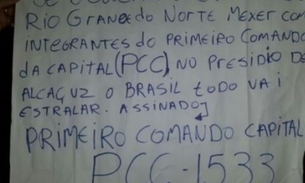 RIO GRANDE DO NORTE MEXER COM
INTEGRANTES do PRIMEIRO COMANDO
DA CAPITAL (PCC) NO PRESIDIO DE
ALCAÇUZ O BRASIL tODO VAI
ESTRALAR. ASSINADO
PRIMEIRO COMANDO CAPITAL
PCC-1533